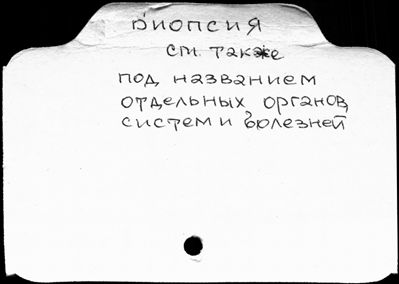 Биопсия
см. также
под названием
отдельных органов,
систем и болезней